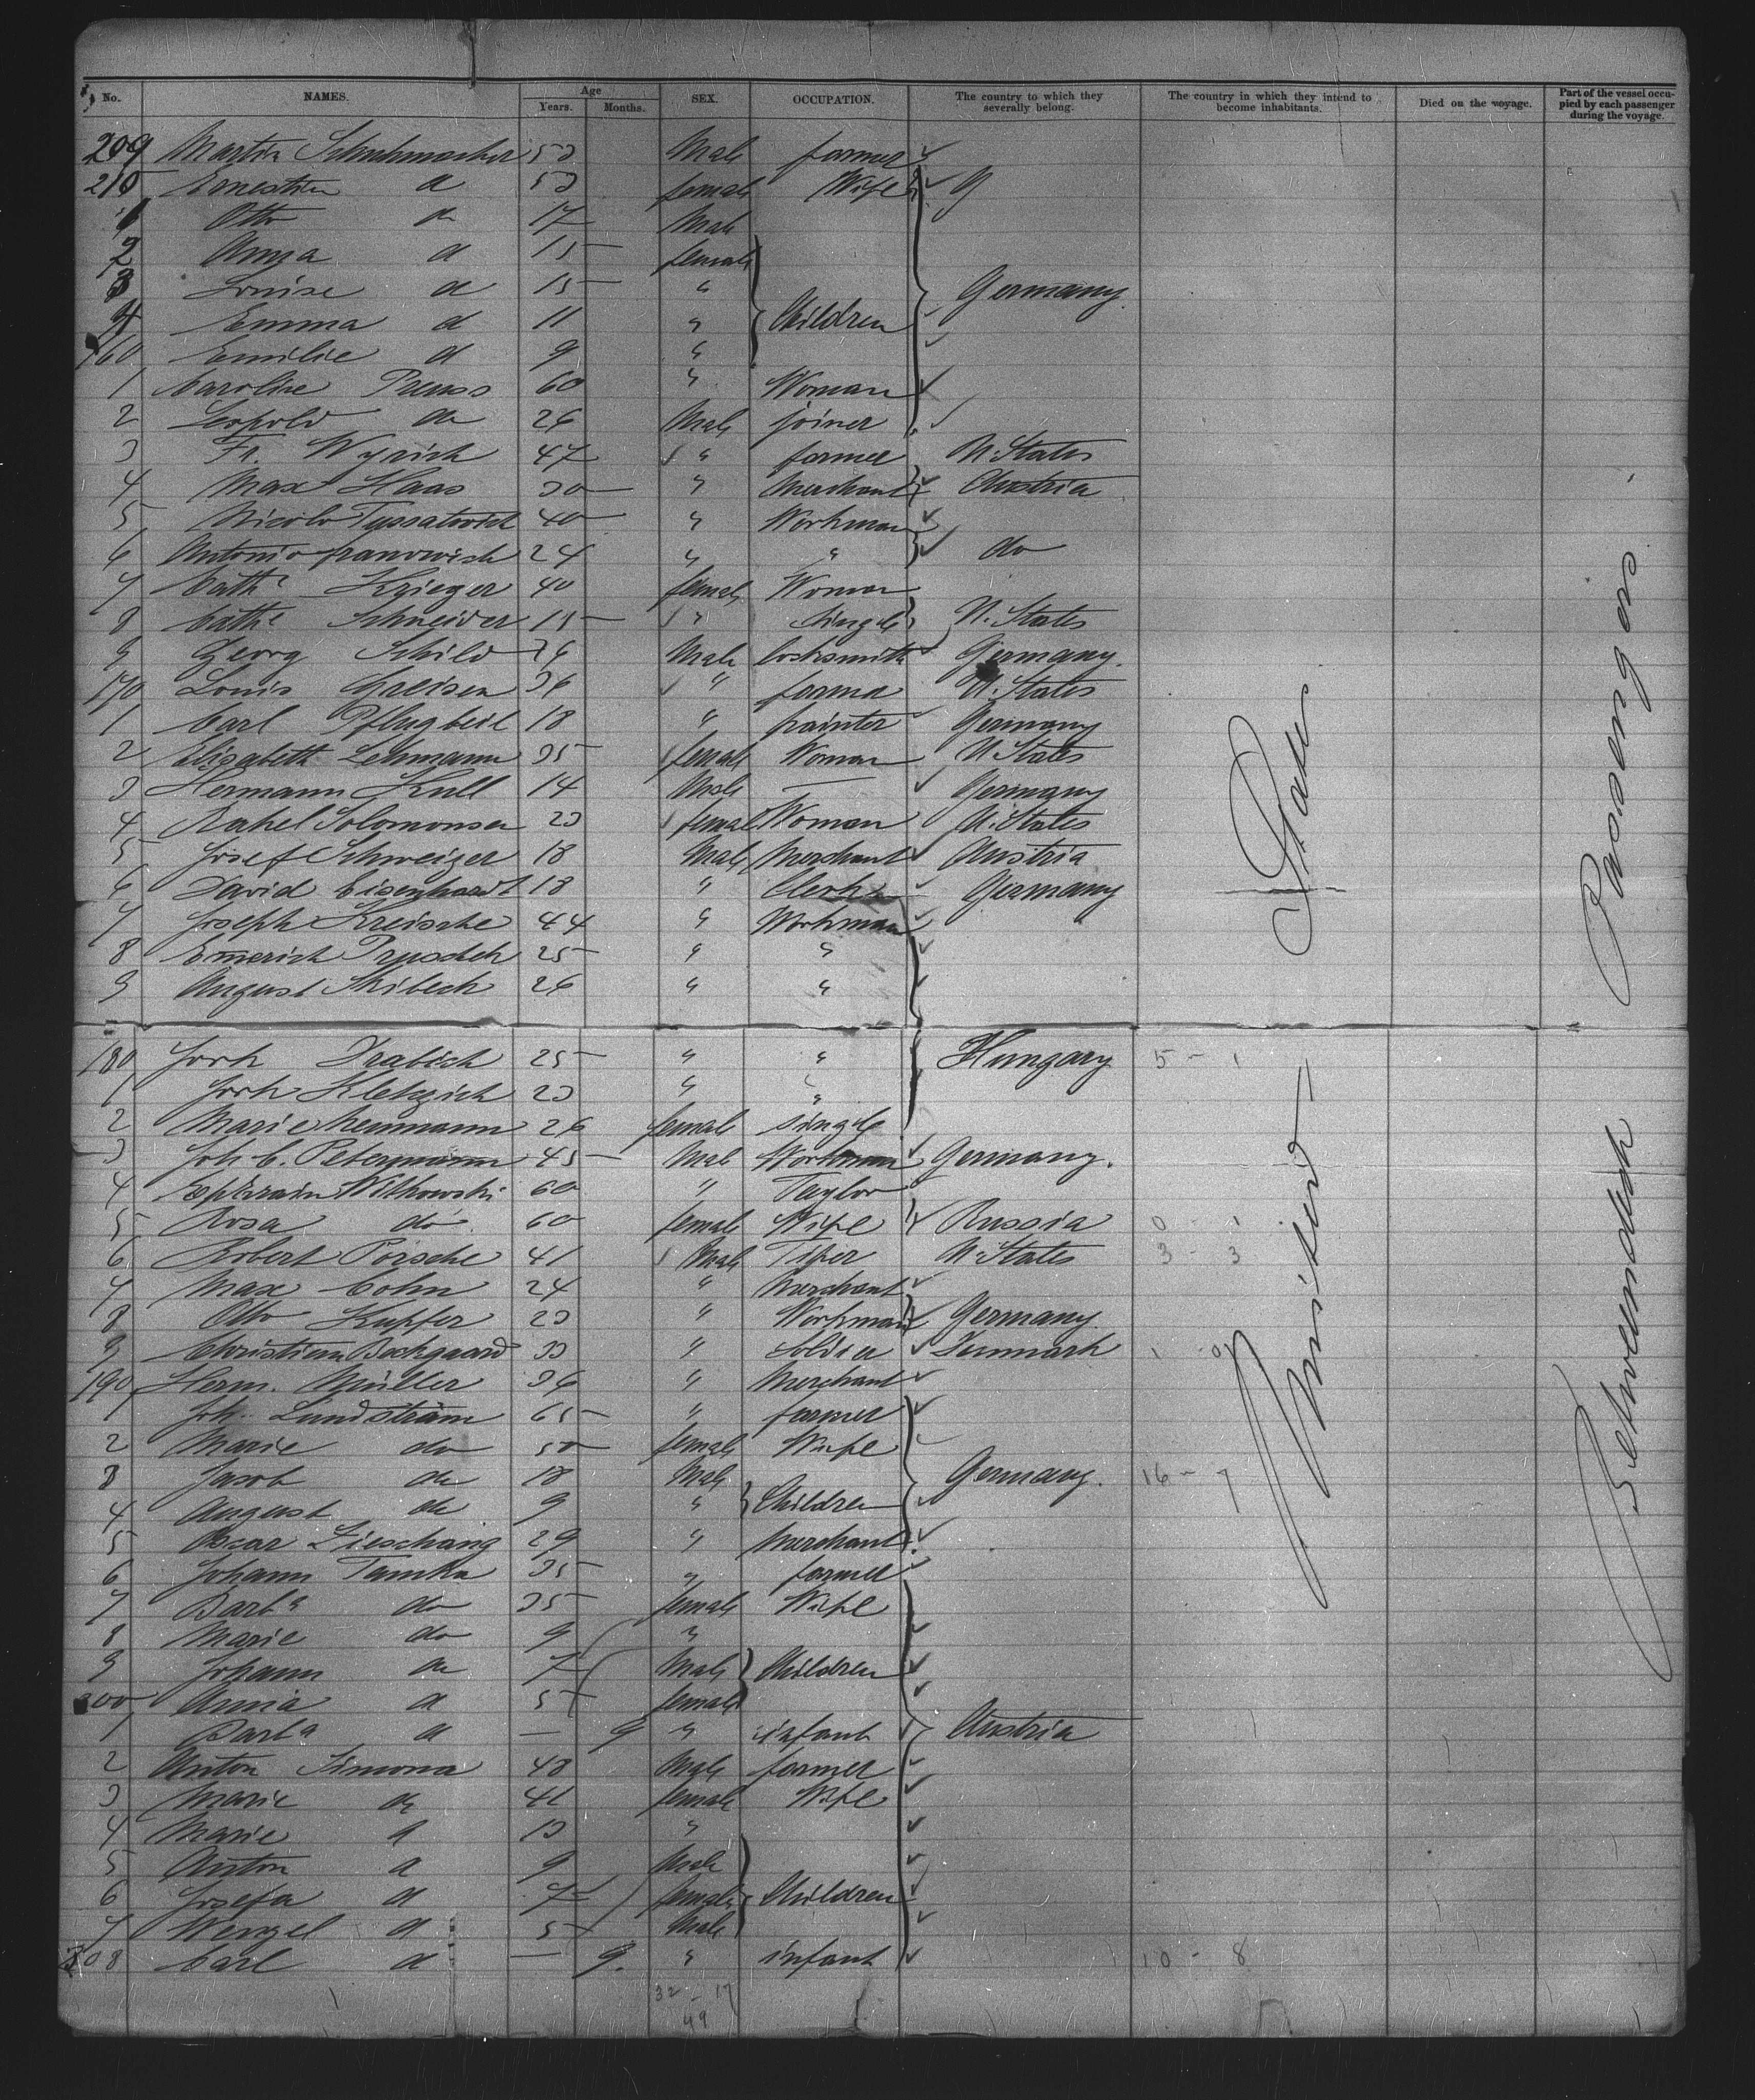 No. NAMES. Age Years. Months. SEX. OCCUPATION. The country to which they severally belong. The country in which they intend to become inhabitants. Died on the voyage. Part of the vessel occupied by each passenger during the voyage.
209 Martin Schuhmacher 53 Male farmer
210 Ernestin d 53 female Wife
1 Otto do 17 Male
2 Anna d 15 female
3 Louise d 15 " Germany
4 Emma d 11 " Children
160 Emilie d 9 "
1 Caroline Preuss 60 " Woman
2 Leopold do 26 Male joiner
3 Fr. Wyrich 47 " farmer U. States
4 Max Haas 30 " Merchant Austria
5 Nicolo 40 " Workman
6 Antonio 24 " " do
7 Cathe Krieger 40 female Woman
8 Cathe Schneider 15 " Single U. States
9 Georg Schild 26 Male locksmith Germany.
170 Louis Greisen 36 " farmer U. States
1 Carl Pflugbeil 18 " painter Germany
2 Elisabeth Lehmann 35 female Woman U. States
3 Hermann Kull 14 Male — Germany
4 Rahel Solomonsen 23 female Woman U. States
5 Josef Schweizer 18 Male Merchant Austria
6 David Eisenhardt 18 " Clerk Germany
7 Joseph Kreische 44 " Workman
8 Emerich 25 " "
9 August Skibech 26 " "
180 Jorh Drabich 25 " " Hungary 5 - 1
1 Jorh 23 " "
2 Marie Neumann 26 female single
3 Joh C. Petermann 45 Male Workman Germany.
4 Ephraim Witkowski 60 " Taylor
5 Rosa do 60 female Wife Russia 0 - 1
6 Robert Porsche 41 Male U. States 3 - 3
7 Max Cohn 24 " Merchant
8 Otto Kupfer 23 " Workman Germany
9 Christian Beckgaard 33 " Soldier Denmark 1 - 0
190 Herm. Müller 36 " Merchant
1 Joh. Lundström 65 " farmer
2 Marie do 50 female Wife
3 Jacob do 18 Male Germany. 16 - 7
4 August do 9 " Children
5 Oscar Zieschang 29 " Merchant
6 Johann Tamka 35 " farmer
7 Barba do 35 female Wife
8 Marie do 9 "
9 Johann do 7 Male Children
200 Annia d 5 female
1 Barba d — 9 " infant Austria
2 Anton Simona 48 Male farmer
3 Marie do 41 female Wife
4 Marie d 13 "
5 Anton d 9 Male
6 Josefa d 7 female Children
7 Wenzel d 5 Male
208 Carl d — 9. " infant 10 - 8
32 - 17
49
United States
Betweendeck Passengers.